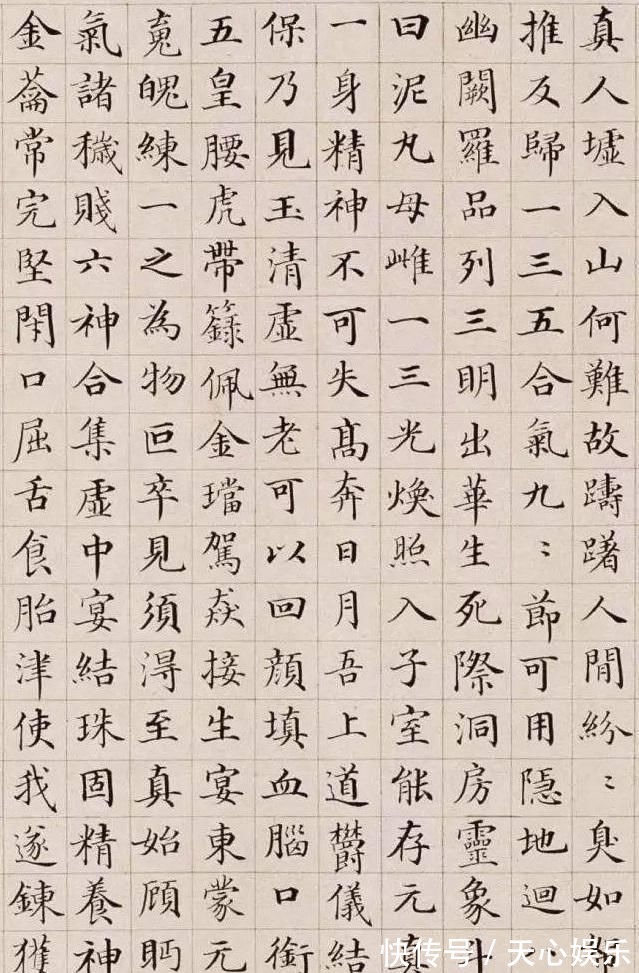 真人墟入山何難故躊躇人間紛〻臭如帤
推反歸一三五合氣九〻節可用隱地迴〻
幽闕羅品列三明出華生死際洞房靈象斗
曰泥丸母雌一三光煥照入子室能存元真
一身精神不可失髙奔日月吾上道鬱儀結
保乃見玉清虛無老可以回顏填血腦口銜
五皇腰虎帶籙佩金璫駕焱接生宴東蒙元
䰟魄練一之為物叵卒見須得至真始顧眄
氣諸穢賤六神合集虛中宴結珠固精養神
金籥常完堅閇口屈舌食胎津使我遂鍊獲
快传号 / 天心娱乐